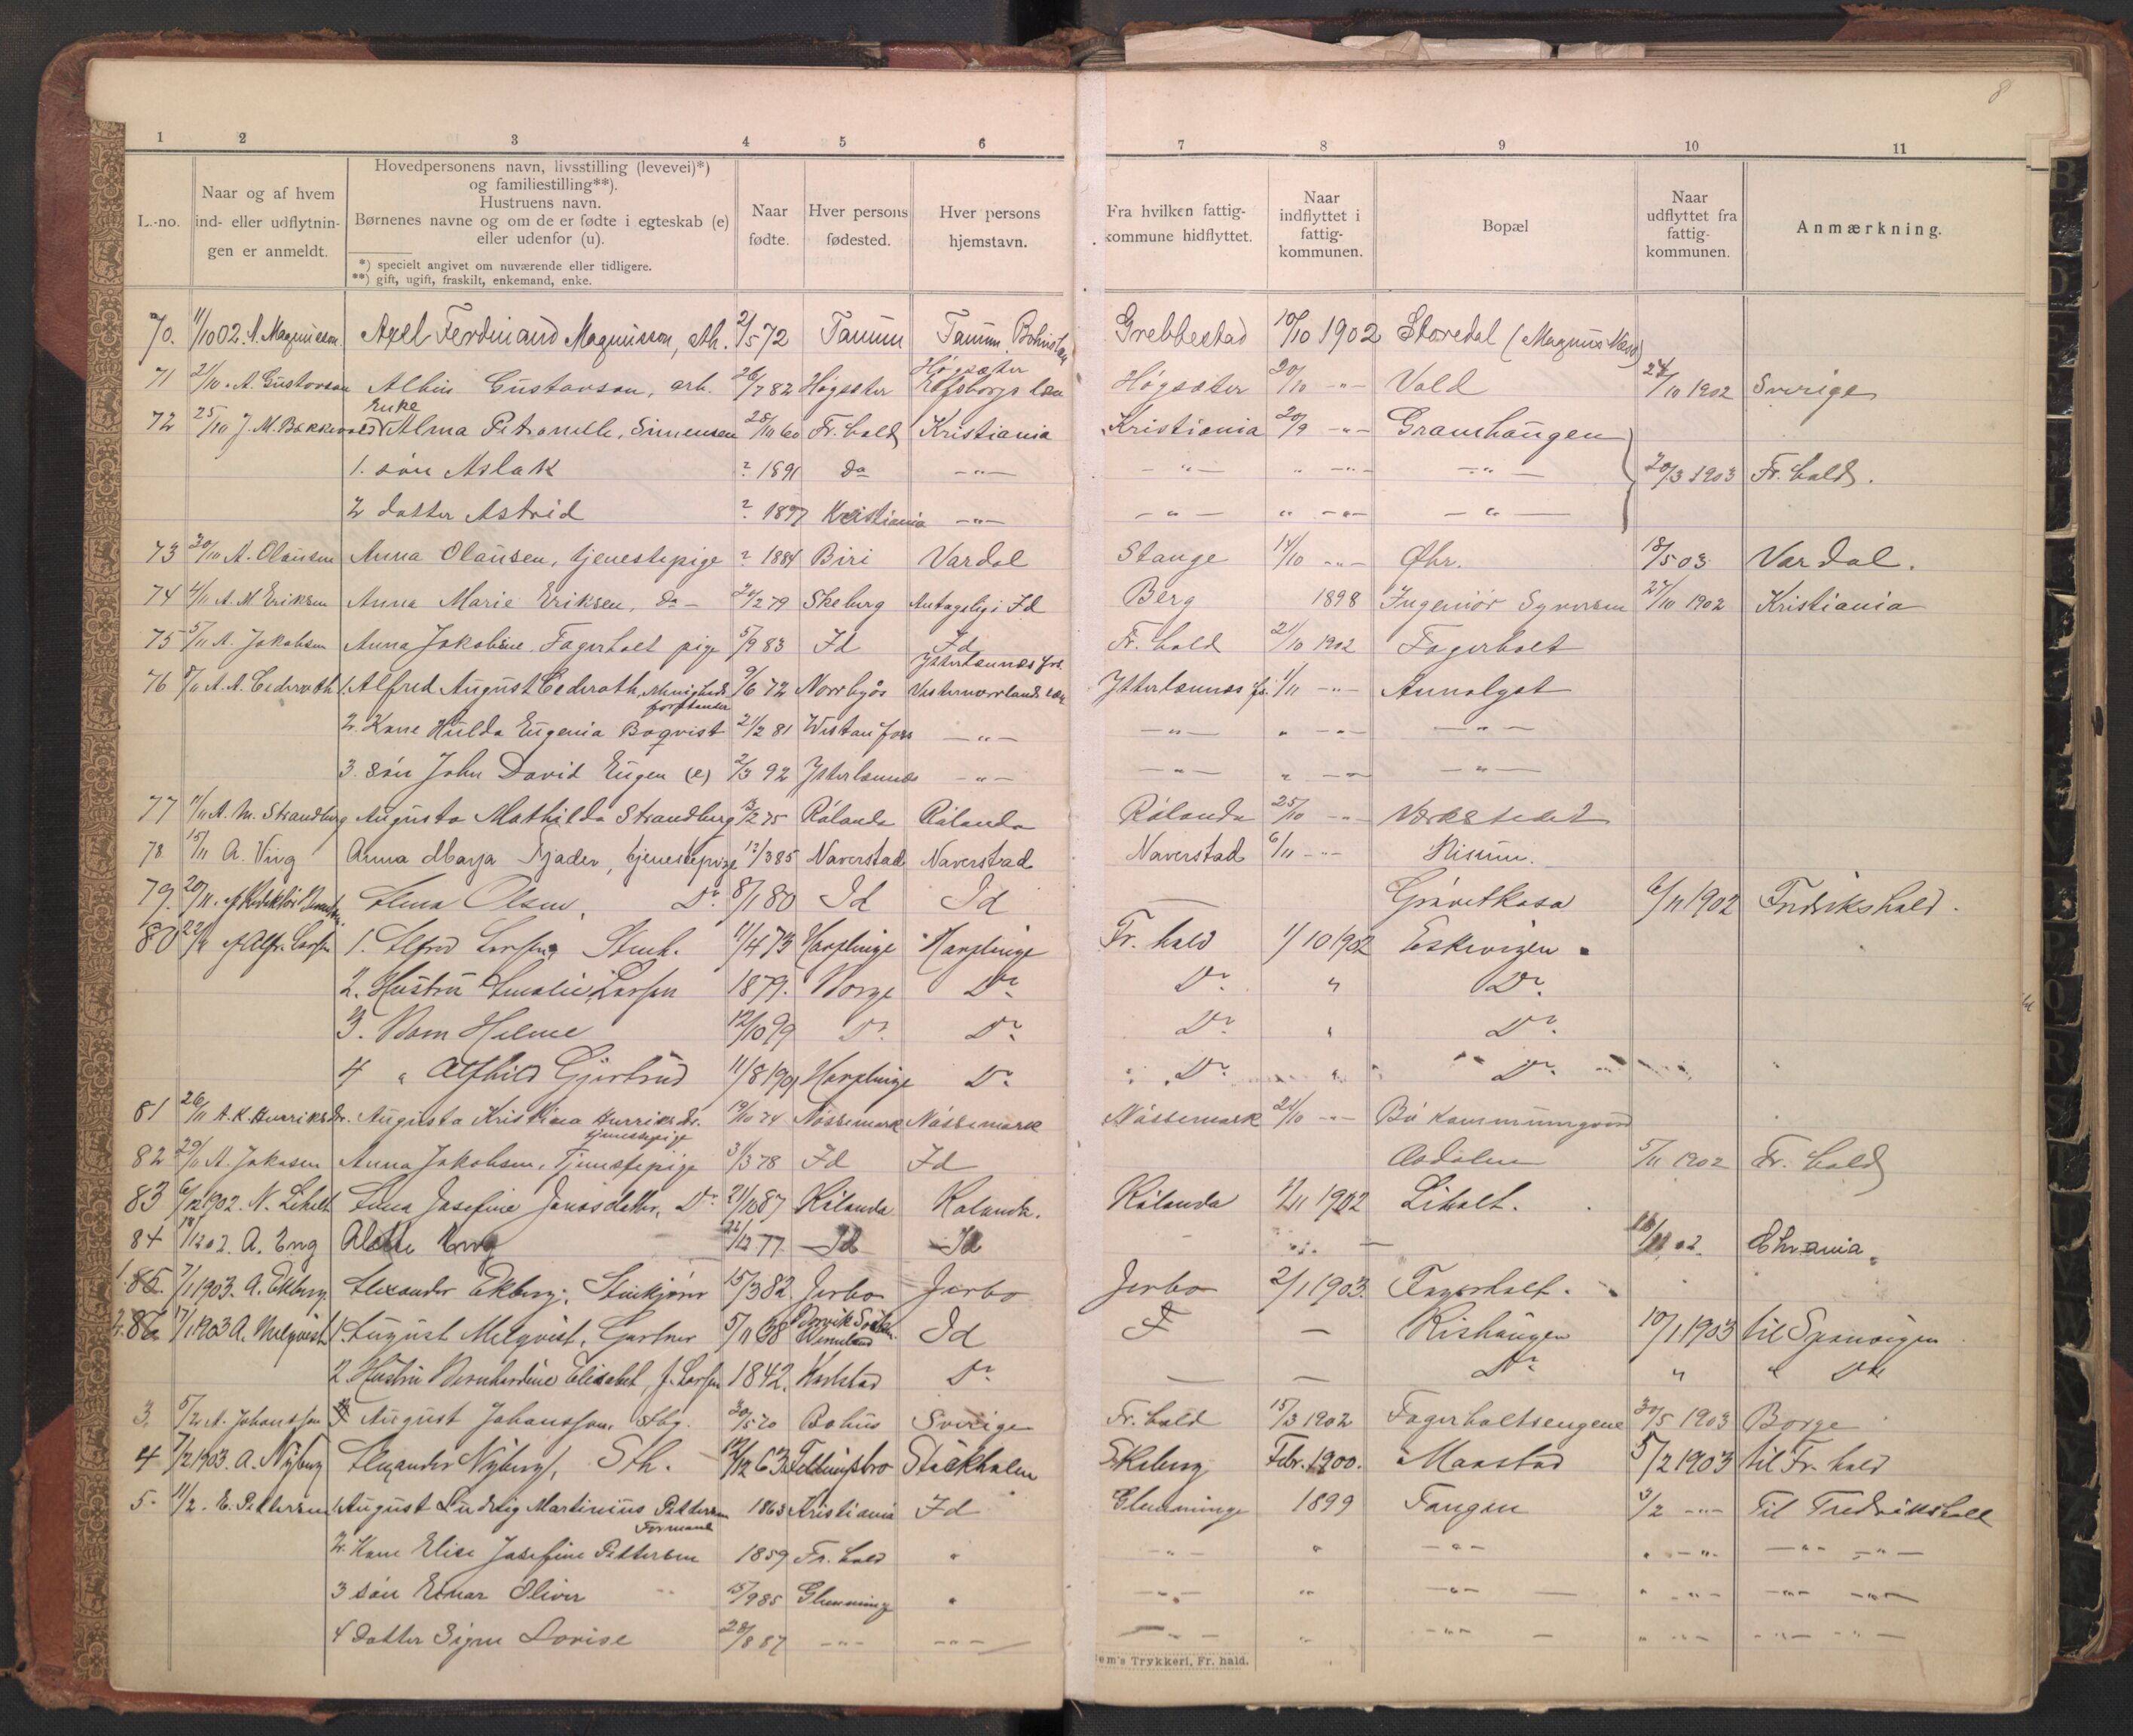 8
1 2 3 4 5 6 7 8 9 10 11
L.-no.
Naar og af hvem
ind- eller udflytnin-
gen er anmeldt.
Hovedpersonens navn, livsstilling (levevei)*)
og familiestilling**).
Hustruens navn.
Børnenes navne og om de er fødte i egteskab (e)
eller udenfor (u).
*) specielt angivet om nuværende eller tidligere.
**) gift, ugift, fraskilt, enkemand, enke.
Naar
fødte.
Hver persons
fødested.
Hver persons
hjemstavn.
Fra hvilken fattig-
kommune hidflyttet.
Naar
indflyttet i
fattig-
kommunen.
Bopæl
Naar
udflyttet fra
fattig-
kommunen.
Anmærkning.
70. 11/10 02. A. Magnusson Axel Ferdinand Magnusson, Ath. 2/5 72 Tanum Tanum, Grebbestad 10/10 1902 Storedal (Magnus
71 21/10. A. Gustavson Albin Gustavson, arb. 26/7 82 Högsäter Högsäter Elfsborgs län Högsäter 20/10 -"- Vold 24/10 1902 Sverige
Enke
72 25/10 J. M. Bakkevold Alma Petronelle, Simensen 28/10 60 Fr.hald Kristiania Kristiania 20/9 -"- Gramhaugen
1. søn Aslak ? 1891 do -"- -"- " -"- -"- 20/3 1903 Fr.hald.
2 datter Astrid ? 1897 Kristiania -"- -"- " -"- -"-
73 30/10 A. Olausen Anna Olausen, tjenestepige ? 1884 Biri Vardal Stange 14/10 -"- Øhr. 18/5 03 Vardal.
74 4/11 A. M Eriksen Anna Marie Eriksen, do - 20/2 79 Skeberg Antagelig i Id Berg 1898 Ingeniør Syversen 27/10 1902 Kristiania
75 5/11 A. Jakobsen Anna Jakobine Fagerholt pige 5/9 83 Id Id Fr.hald 21/10 1902 Fagerholt
76 8/11 A. A. Cederoth 1. Alfred August Cederoth, Menigheds forstander 9/6 72 Norrbyås Ytterlännäs Vesternorrlands län Ytterlännäs 1/11 -"- Annolyst
2. Kone Hulda Eugenia Boqvist 21/2 81 -"- -"- " -"- -"-
3. søn John David Eugen (e) 2/3 92 Ytterlännäs -"- -"- " -"- -"-
77 11/11 A. M. Strandberg Augusta Mathilda Strandberg 13/2 75 Rölanda Rölanda Rölanda 25/10 -"- Værkstedet
78. 15/11 A. Ving Anna Marja Fjæder, tjenestepige 12/3 85 Naverstad Naverstad Naverstad 6/11 -"- Risum.
79. 20/11. Alma Olsen, Do 8/1 80 Id Id Grønetkasa 6/11 1902 Fredrikshald.
80 22/11 af Alfr. Larsen 1. Alfred Larsen, Stenh. 11/4 73 Harplinge Harplinge Fr. hald 1/10 1902 Eskevigen
2. Hustru Amalie Larsen 1879. Norge Do Do " Do.
3. Barn Helene 12/10 99 Do. Do Do. " Do.
4 " Alfhild Gjertrud 11/8 1901 Harplinge Do Do. " Do.
81 26/11 A. K. Henriksdr. Augusta Kristina Henriksdr. tjenestepige 19/10 74 Nössemark Nössemark Nössemark 24/10 -"- Bø
82 29/11 A. Jakosen Anna Jakobsen, Tjenestepige 31/3 78 Id Id Asdalen 5/11 1902 Fr.hald
83 6/12 1902. N. Liholt Josefine Jonasdatter, Do 21/10 87 Rölanda Rolanda. Rölanda 1/11 1902 Liholt.
84 18/12 02. A. Eng Eng 22/12 77 Id Id Chrania.
1. 85. 7/1 1903. A. Ekberg Alexander Ekberg, Stenkjører 15/3 82. Jerbo Jerbo Jerbo 2/1 1903. Fagerholt.
2. 86 17/1 1903 A. Melqvist 1. August Melqvist, Gartner 5/11 38 Id — Rishaugen 10/1 1903 til Sponvigen
2. Hustru Bernhardine Elisabet, f. Larsen 1842. Karlstad Do. — — Do. " " Do
3. 5/2 A. Johansson August Johansson, Stbg. 30/5 70 Bohus Sverige Fr.hald 15/3 1902 Fagerholtsengene 30/5 1903 Borge
4 7/2 1903. A. Nyberg Alexander Nyberg, Sth. 12/12 63 Fellingsbro Stockholm Skeberg Febr. 1900. Maastad 5/2 1903 til Fr. hald
5. 11/2. E. Pettersen 1 August Ludvig Martinius Pettersen Formand 1863 Kristiania Id Glemminge 1899 Tangen 3/2 -"- Til Fredrikshald
2. Kone Elise Josefine Pettersen 1859 Fr.hald " -"- " -"- " -"- -"- -"-
3 søn Einar Oliver 15/9 85 Glemminge " -"- " -"- " -"- -"- -"-
4 datter Signe Lovise 28/8 87 -"- -"- -"- " -"- " -"- -"- -"-
em's Trykkeri, Fr. hald.